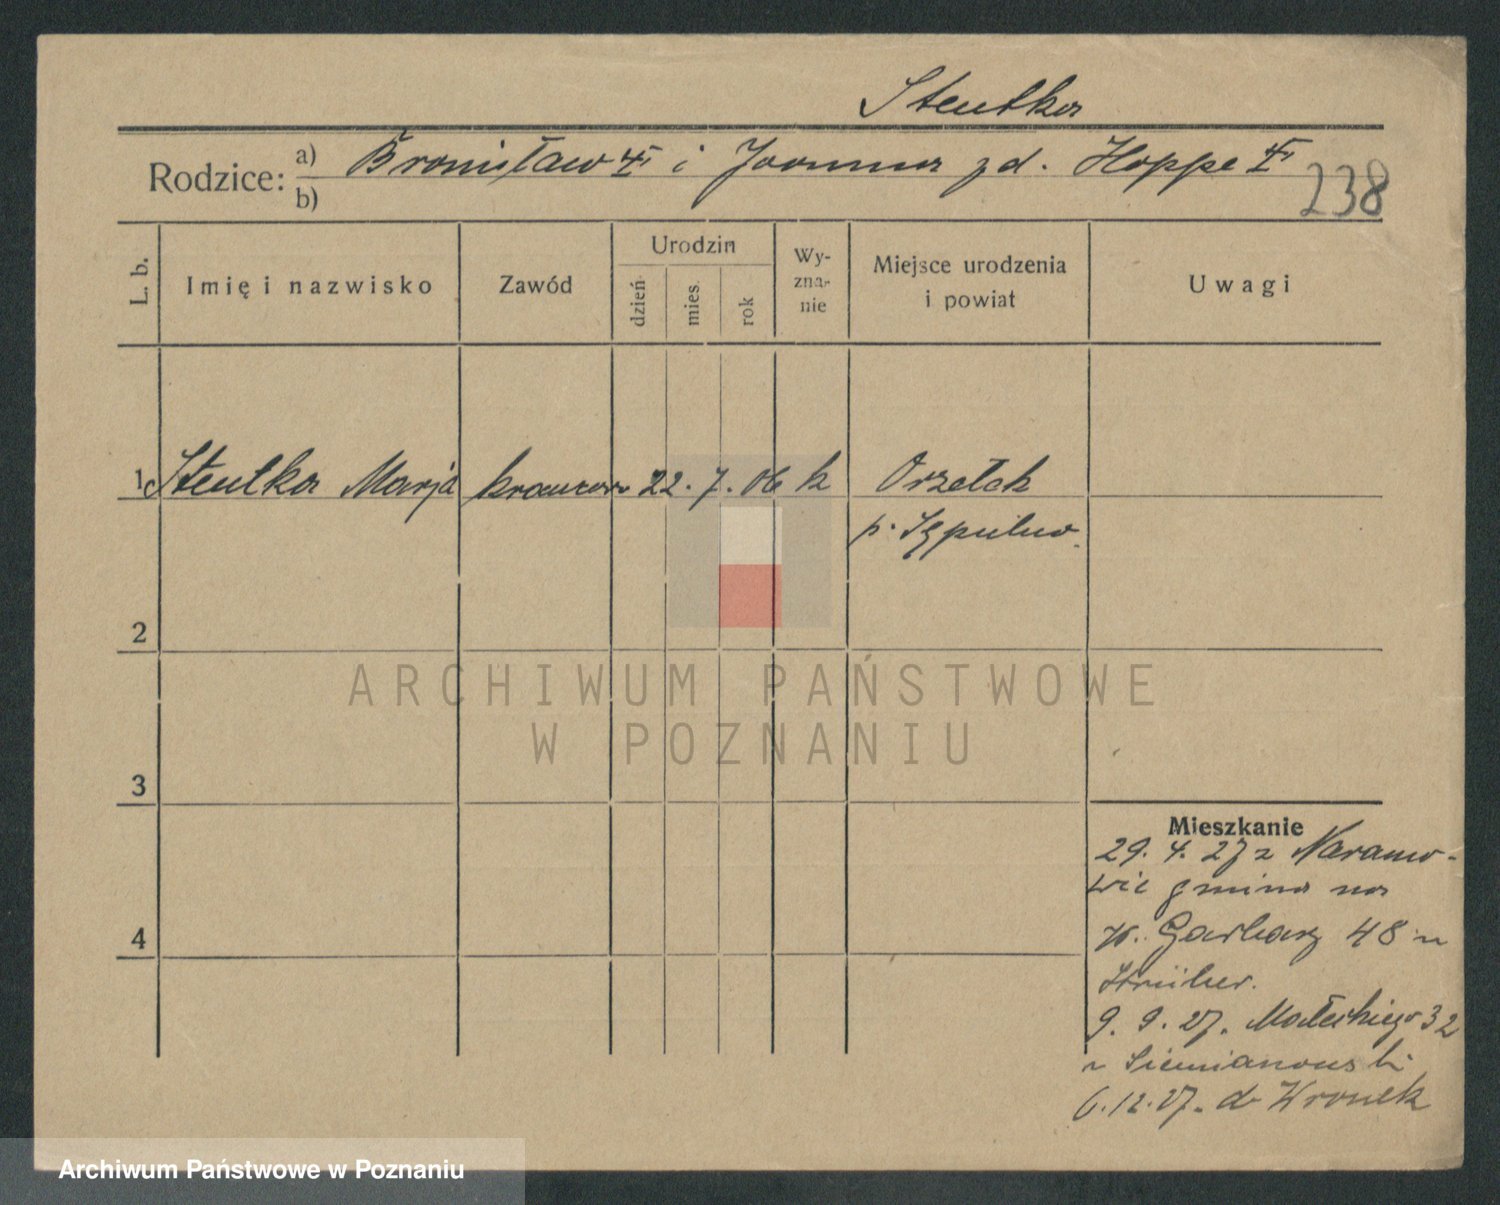 Stentka
Rodzice: a) Bronisław i Joanna zd. Hoppe
b)
238
L. b.
Imię i nazwisko
Zawód
Urodzin
dzień
mies.
rok
Wy-
zna-
nie
Miejsce urodzenia
i powiat
Uwagi
1 Stentka Marja krawcowa 22. 7. 06 k Orzełek
p. Sępulno.
2
3
4
ARCHIWUM PAŃSTWOWE
W POZNANIU
Mieszkanie
29. 4. 27 z Naramo-
wic gmina na
W. Garbary 48 u
9. 9. 27. Małeckiego 32
u Siemianowski
6.12.27. do Wronek
Archiwum Państwowe w Poznaniu